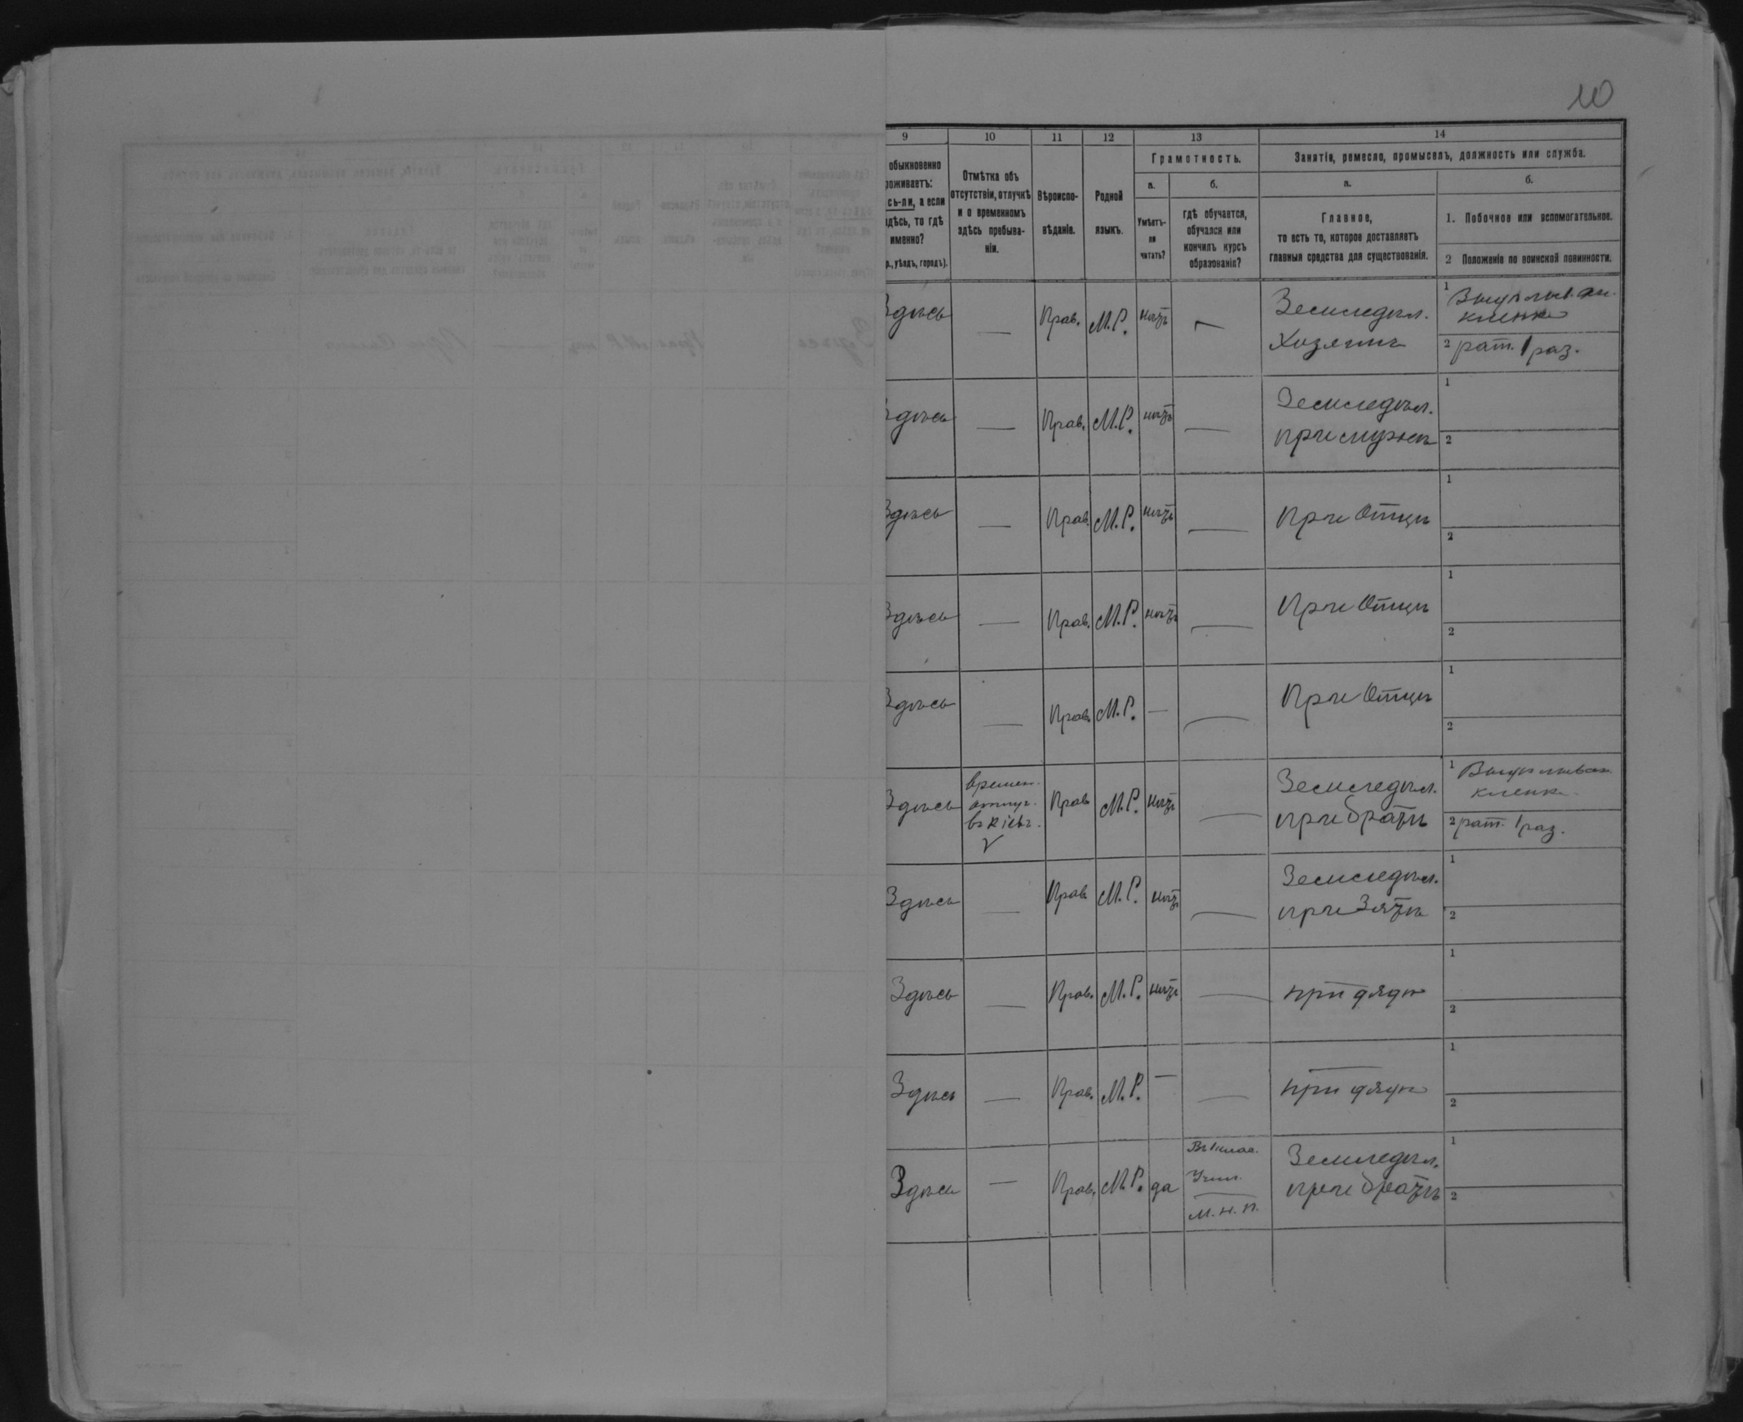 10
9 10 11 12 13 14
обыкновенно
роживаетъ:
сь-ли, а если
здѣсь, то гдѣ
именно?
р., уѣздъ, городъ).
Отмѣтка объ
отсутствіи, отлучкѣ
и о временномъ
здѣсь пребыва-
ніи.
Вѣроиспо-
вѣданіе.
Родной
языкъ.
Грамотность.
а.
Умѣетъ-
ли
читать?
б.
гдѣ обучается,
обучался или
кончилъ курсъ
образованія?
Занятія, ремесло, промыселъ, должность или служба.
а.
Главное,
то есть то, которое доставляетъ
главныя средства для существованія.
б.
1. Побочное или вспомогательное.
2 Положеніе по воинской повинности.
Здѣсь — Прав. М.Р. нѣтъ — Земледѣл.
Хозяинъ
1
клепки
2 рат. 1 раз.
Здѣсь — Прав. М.Р. нѣтъ — Земледѣл.
при мужѣ
1
2
Здѣсь — Прав. М.Р. нѣтъ — При Отцѣ
1
2
Здѣсь — Прав. М.Р. нѣтъ — При Отцѣ
1
2
Здѣсь — Прав. М.Р. — — При Отцѣ
1
2
Здѣсь времен.
отлуч.
въ Кіевъ.
Прав. М.Р. нѣтъ — Земледѣл.
при братѣ
1
клепк.
2 рат. 1 раз.
Здѣсь — Прав. М.Р. нѣтъ — Земледѣл.
при Зятѣ
1
2
Здѣсь — Прав. М.Р. нѣтъ — при дядѣ
1
2
Здѣсь — Прав. М.Р. — — при дядѣ
1
2
Здѣсь — Прав. М.Р. да Въ 1 клас.
Учил.
М.Н.П.
Земледѣл.
при братѣ
1
2